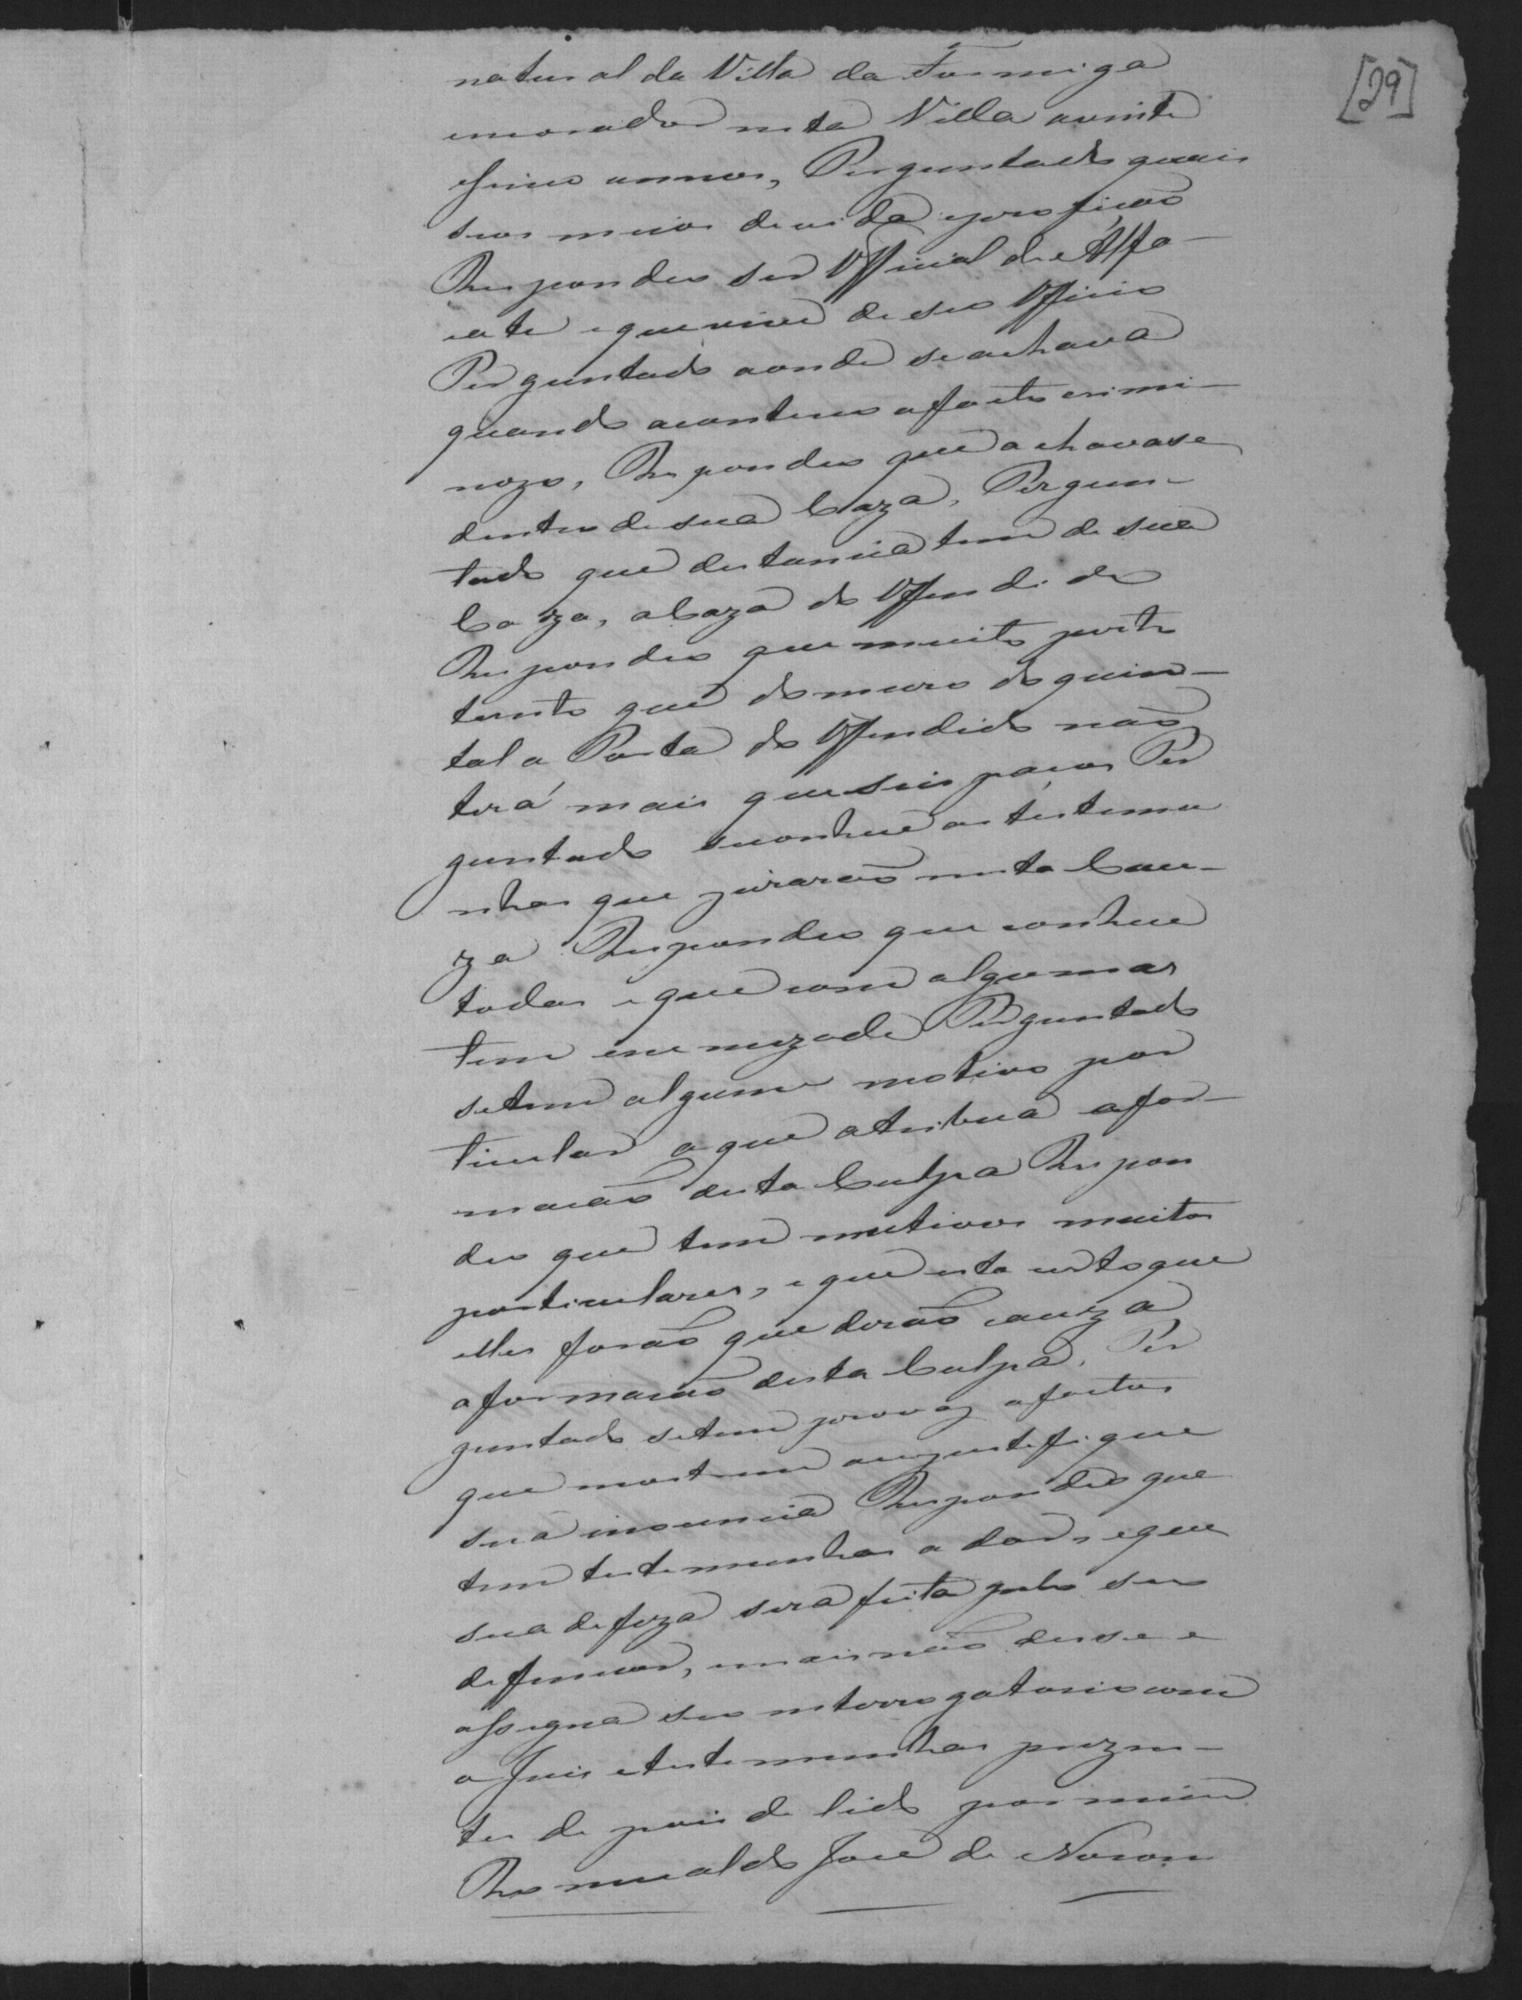 [29]
natural da Villa da Formiga
emorador nesta Villa avinte
esinco annos, Perguntado quais
seos meios devida eprofição
Respondeo ser Official de Alfa-
iate e quevive de seo Officio
Perguntado aonde seachava
quando aconteceo ofacto crimi-
nozo, Respondeo que achavase
dentro desua Caza, Pergun-
tado que distancia tem de sua
Caza, aCaza do Offendido
Respondeo que muito perto
tanto que do muro do quin-
tal a Porta do Offendido não
terá mais que seis paços Per
guntado seconhece as testemu
nhas que jurarão nesta Cau-
za Respondeo que conhece
todas e que com algumas
tem inemizade Perguntado
setem algum motivo par
ticular a que atribua afor-
mação desta Culpa Respon
deo que tem motivos muito
particulares, e que esta certo que
elles forão que derão cauza
aformação desta Culpa, Per
guntado setem provas ofactos
que mostrem oujustifique
sua inocencia Respondeo que
tem testemunhas a dar, eque
sua defeza sera feita pelo seo
defençor, emais não disse e
assigna seo interrogatorio com
o Juis etestemunhas prezen-
tes depois de lido por mim
Romualdo José de Noron